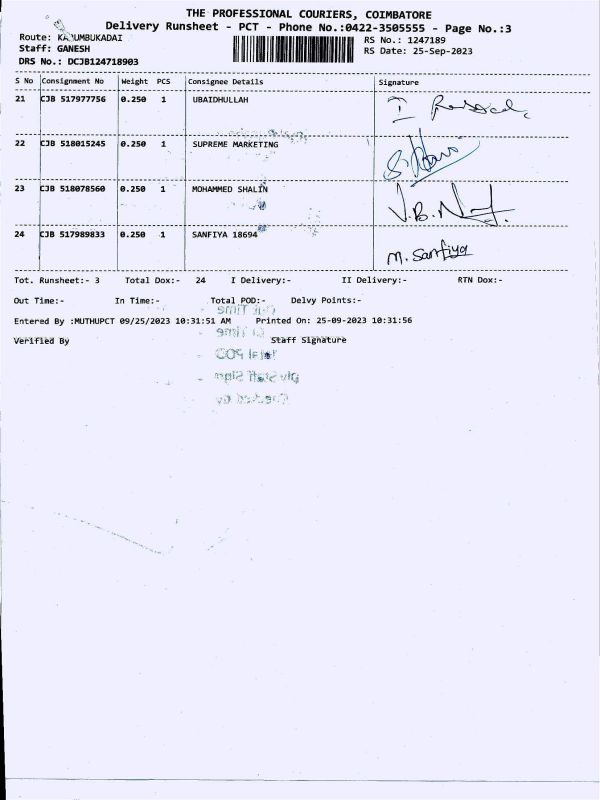 THE PROFESSIONAL COURIERS, COIMBATORE
Delivery Runsheet - PCT - Phone No.:0422-3505555 - Page No.:3
Route: KARUMBUKADAI
RS No.: 1247189
Staff: GANESH
RS Date: 25-Sep-2023
DRS No.: DCJB124718903
S No Consignment No Weight PCS Consignee Details Signature
21 CJB 517977756 0.250 1 UBAIDHULLAH
22 CJB 518015245 0.250 1 SUPREME MARKETING
23 CJB 518078560 0.250 1 MOHAMMED SHALIN V.B.
24 CJB 517989833 0.250 1 SANFIYA 18694 M. Sanfiya
Tot. Runsheet:- 3 Total Dox:- 24 I Delivery:- II Delivery:- RTN Dox:-
Out Time:- In Time:- Total POD:- Delvy Points:-
Entered By :MUTHUPCT 09/25/2023 10:31:51 AM Printed On: 25-09-2023 10:31:56
Verified By Staff Signature